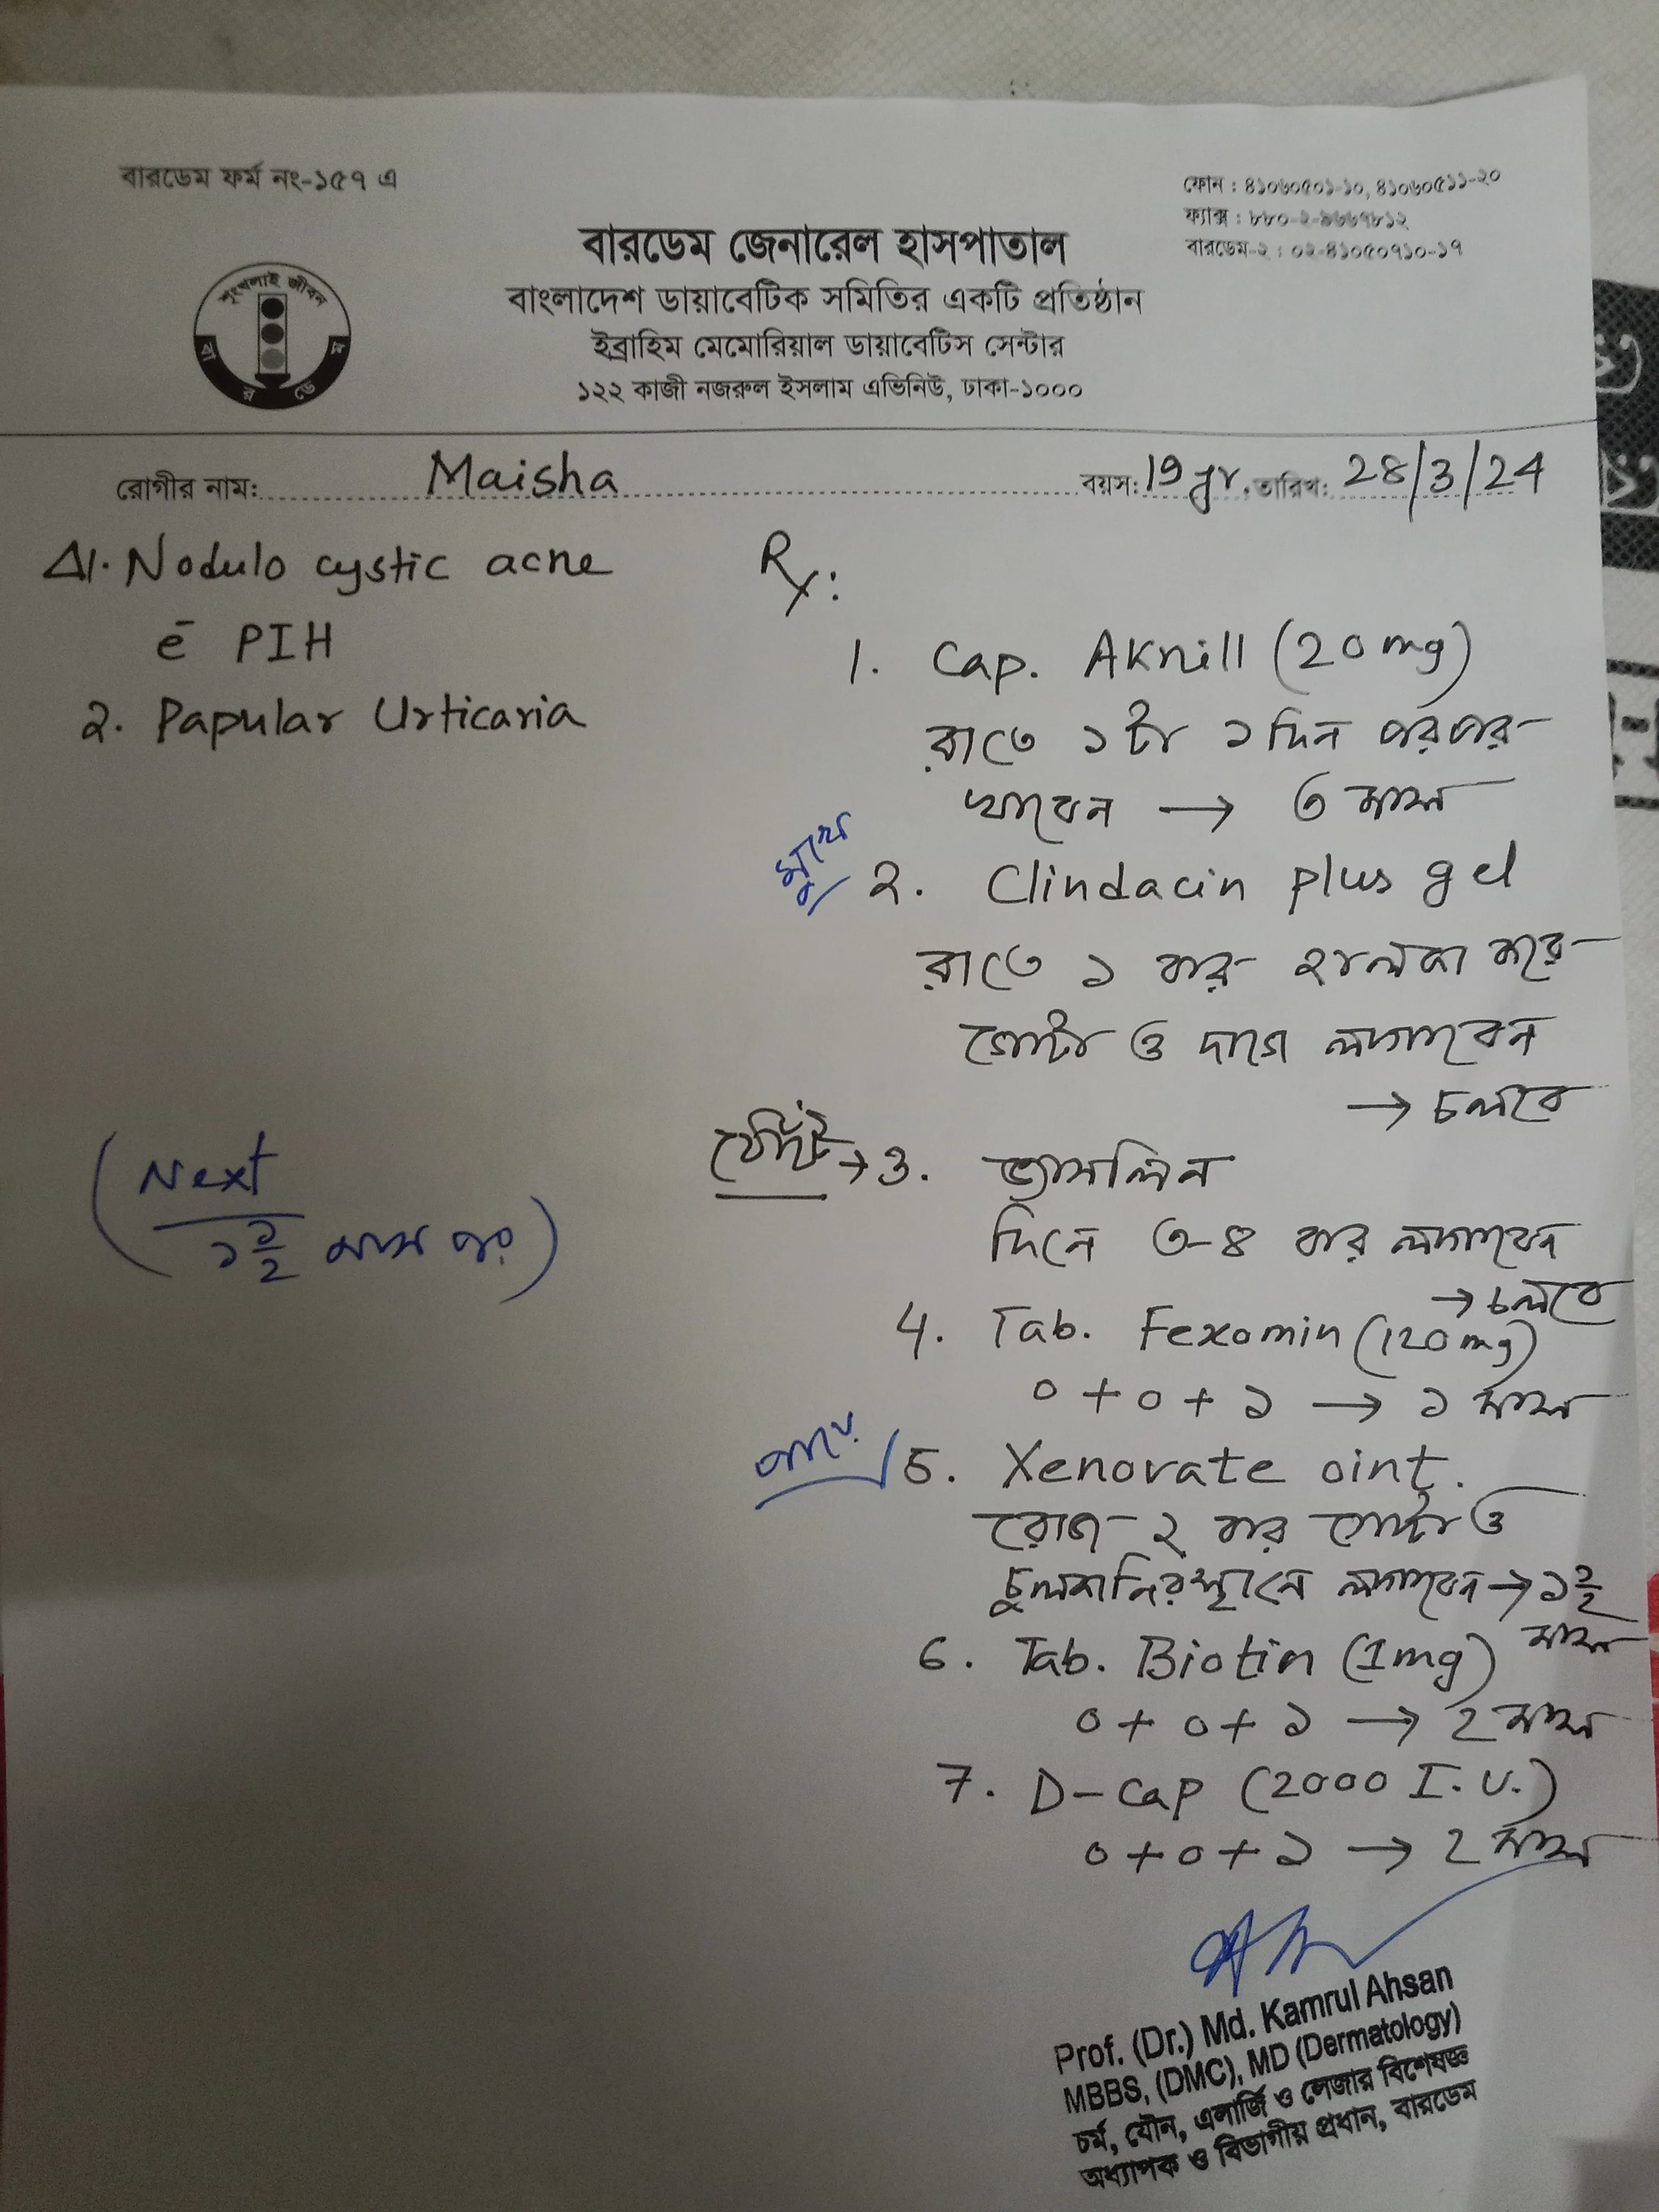 বারডেম ফর্ম নং-১৫৭ এ
ফোন : ৪১০৬০৫০১-১০, ৪১০৬০৫১১-২০
ফ্যাক্স : ৮৮০-২-৯৬৬৭৮১২
বারডেম-২ : ০২-৪১০৫০৭১০-১৭
বারডেম জেনারেল হাসপাতাল
বাংলাদেশ ডায়াবেটিক সমিতির একটি প্রতিষ্ঠান
ইব্রাহিম মেমোরিয়াল ডায়াবেটিস সেন্টার
১২২ কাজী নজরুল ইসলাম এভিনিউ, ঢাকা-১০০০
শৃংখলাই জীবন
বারডেম
রোগীর নাম: Maisha বয়স: 19 yr. তারিখ: 28/3/24
Δ1. Nodulo cystic acne
c̄ PIH
2. Papular Urticaria
(Next
১ ১/২ মাস পর)
Rx:
1. Cap. Aknill (20 mg)
রাতে ১টা ১ দিন পরপর
খাবেন → ৩ মাস
মুখে
2. Clindacin plus gel
রাতে ১ বার হালকা করে
গোটা ও দাগে লাগাবেন
→ চলবে
ঠোঁটে → 3. ভ্যাসলিন
দিনে ৩-৪ বার লাগাবেন
→ চলবে
4. Tab. Fexomin (120 mg)
০ + ০ + ১ → ১ মাস
5. Xenovate oint.
রোজ ২ বার গোটা ও
চুলকানির স্থানে লাগাবেন → ১ ১/২
মাস
6. Tab. Biotin (1mg)
০ + ০ + ১ → 2 মাস
7. D-Cap (2000 I.U.)
০ + ০ + ১ → 2 মাস
Prof. (Dr.) Md. Kamrul Ahsan
MBBS, (DMC), MD (Dermatology)
চর্ম, যৌন, এলার্জি ও লেজার বিশেষজ্ঞ
অধ্যাপক ও বিভাগীয় প্রধান, বারডেম